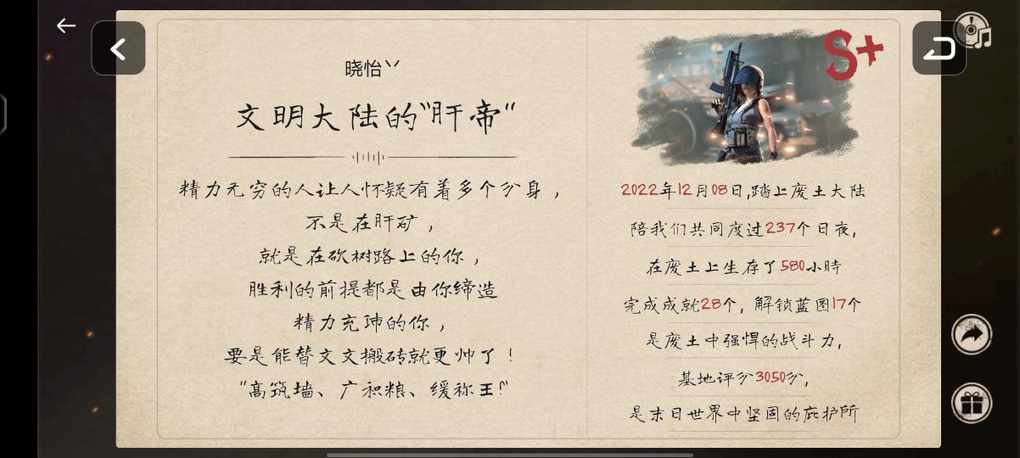 晓怡丷
文明大陆的"肝帝"
精力无穷的人让人怀疑有着多个分身，
不是在肝矿，
就是在砍树路上的你，
胜利的前提都是由你缔造
精力充沛的你，
要是能替文文搬砖就更帅了！
"高筑墙、广积粮、缓称王！"
S+
2022年12月08日,踏上废土大陆
陪我们共同度过237个日夜,
在废土上生存了580小時
完成成就28个，解锁蓝图17个
是废土中强悍的战斗力,
基地评分3050分,
是末日世界中坚固的庇护所